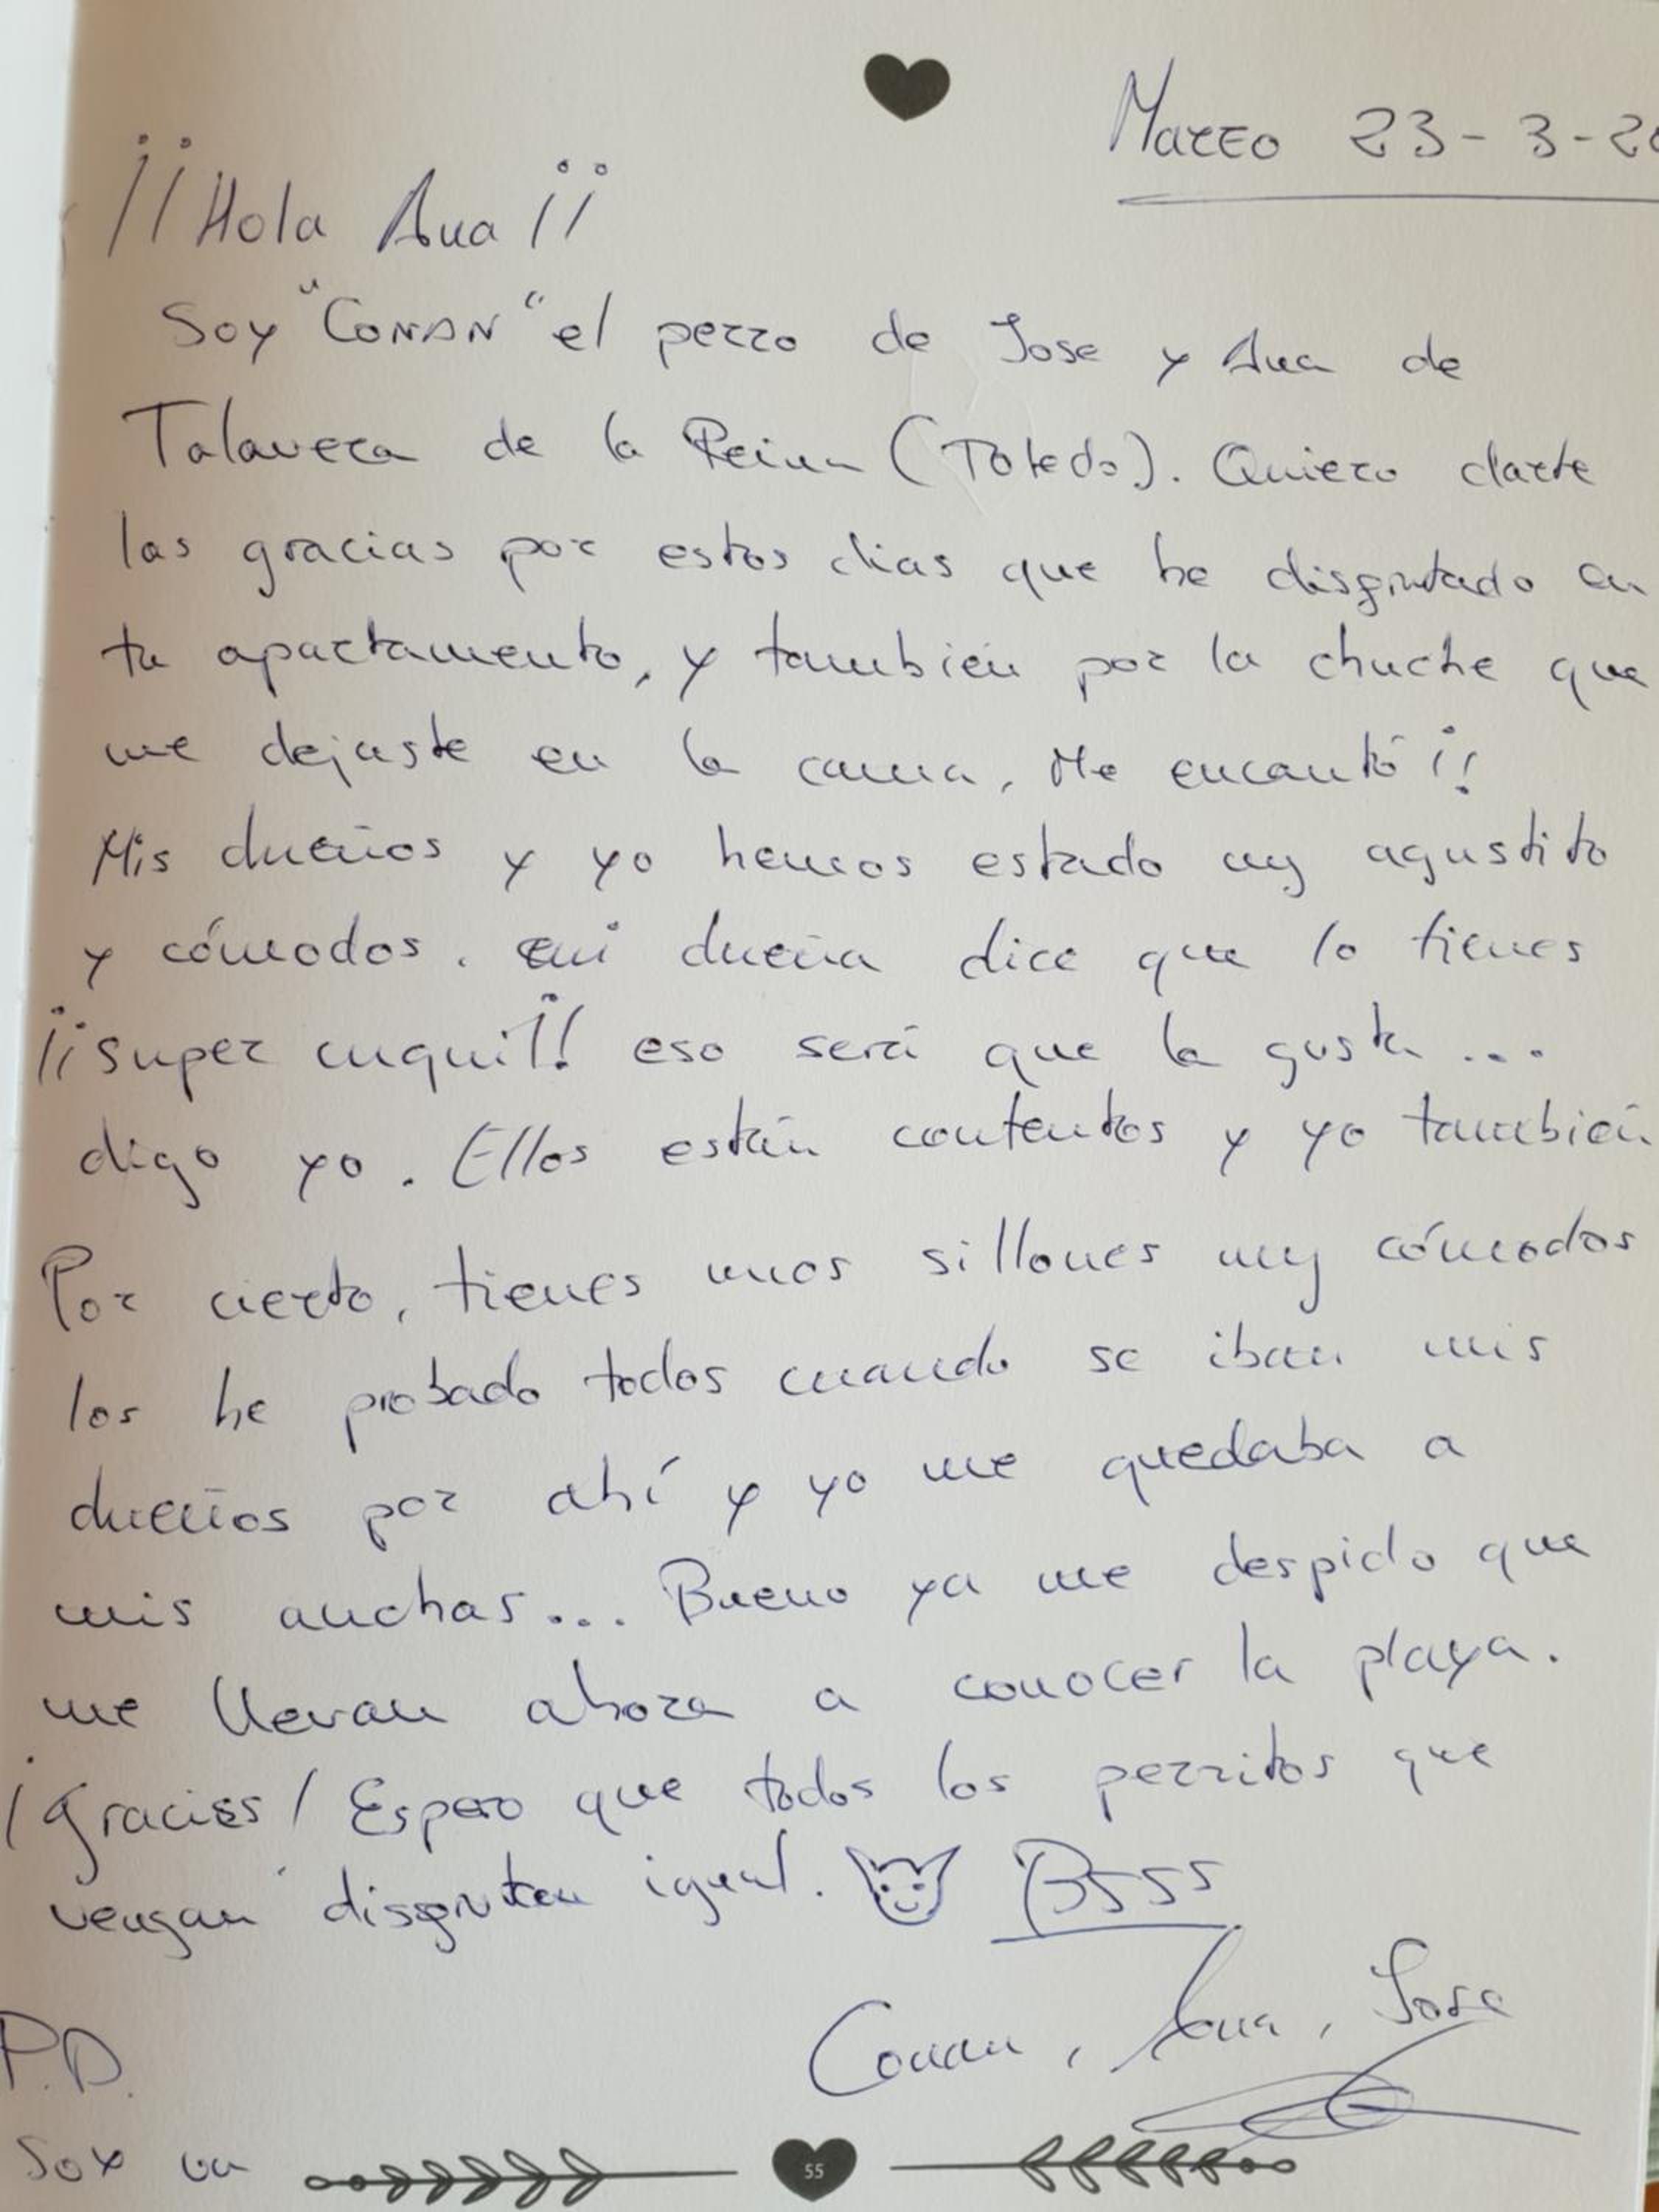 Marzo 23-3-20
¡¡Hola Ana¡¡
Soy "CONAN" el perro de Jose y Ana de
Talavera de la Reina (Toledo). Quiero darte
las gracias por estos dias que he disfrutado en
tu apartamento, y también por la chuche que
me dejaste en la cama, Me encantó¡!
Mis dueños y yo hemos estado muy agustito
y cómodos. mi dueña dice que lo tienes
¡¡super cuqui!! eso será que la gusta...
digo yo. Ellos están contentos y yo también
Por cierto, tienes unos sillones muy cómodos
los he probado todos cuando se iban mis
dueños por ahí y yo me quedaba a
mis anchas... Bueno ya me despido que
me llevan ahora a conocer la playa.
¡Gracias! Espero que todos los perritos que
vengan disfruten igual. Bsss
Conan, Ana, Jose
P.D.
Soy un
55